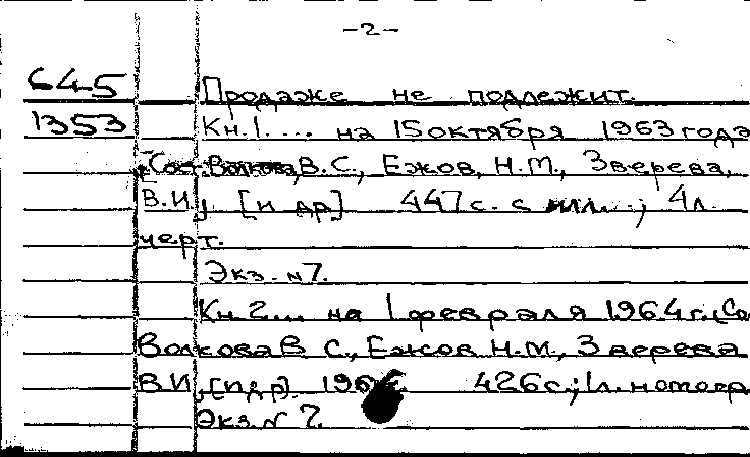 -2-
645 Продаже не подлежит.
1353 Кн.1.... на 15 октября 1963 года
Сост. Волкова, В.С., Ежов, Н.М., Зверева,
В.И., [и др] 447с. с илл.; 4л.
черт.
Экз. №7.
Кн.2... на 1 февраля 1964 г. (Со
Волкова В С., Ежов Н.М., Зверева
В.И., [и др] 426с.; 1л. нотогр
Экз. № 7.